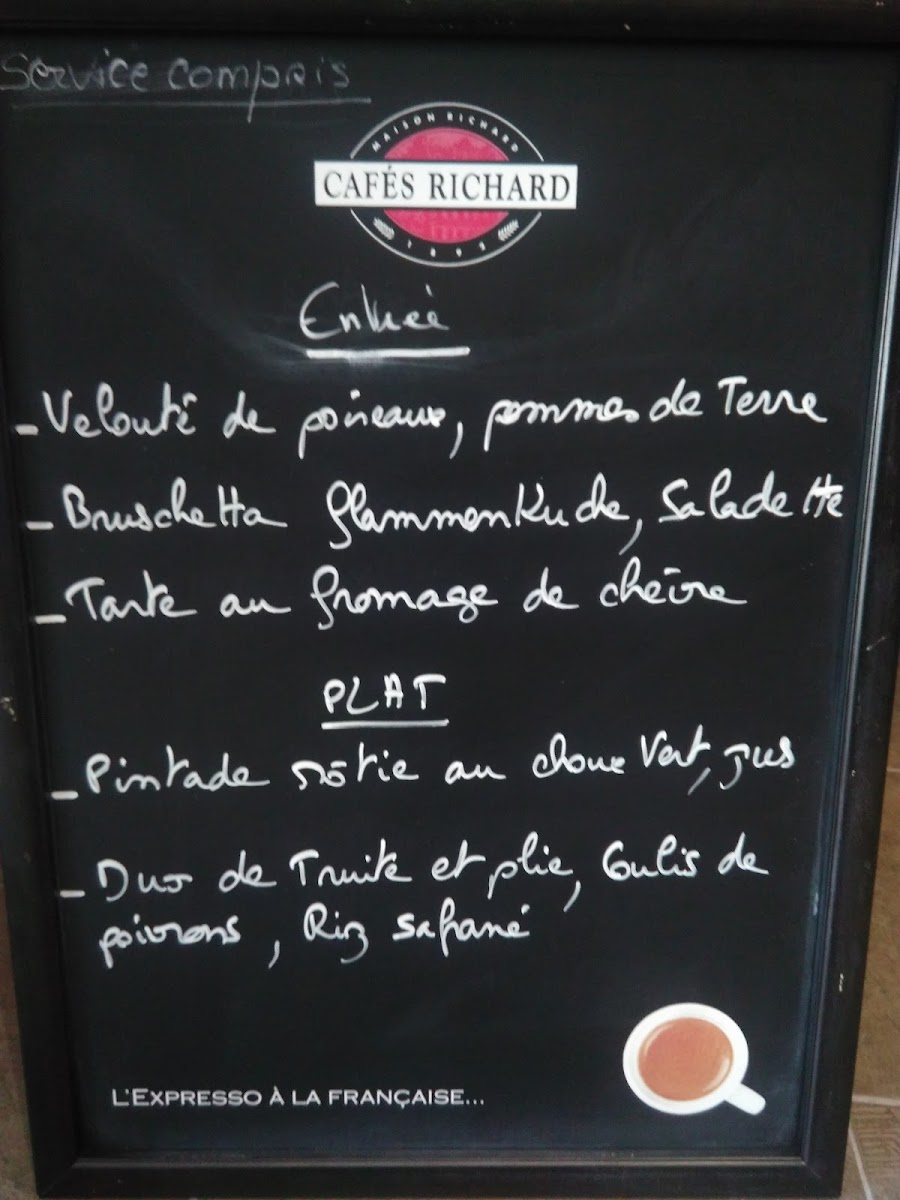 Service compris
MAISON RICHARD
CAFÉS RICHARD
1892
Entrée
- Velouté de poireaux, pommes de Terre
- Bruschetta flammenkuche, Salade tte
- Tarte au fromage de chèvre
PLAT
- Pintade rôtie au choux Vert, jus
- Duo de Truite et plie, Coulis de
poivrons, Riz safrané
L'EXPRESSO À LA FRANÇAISE...